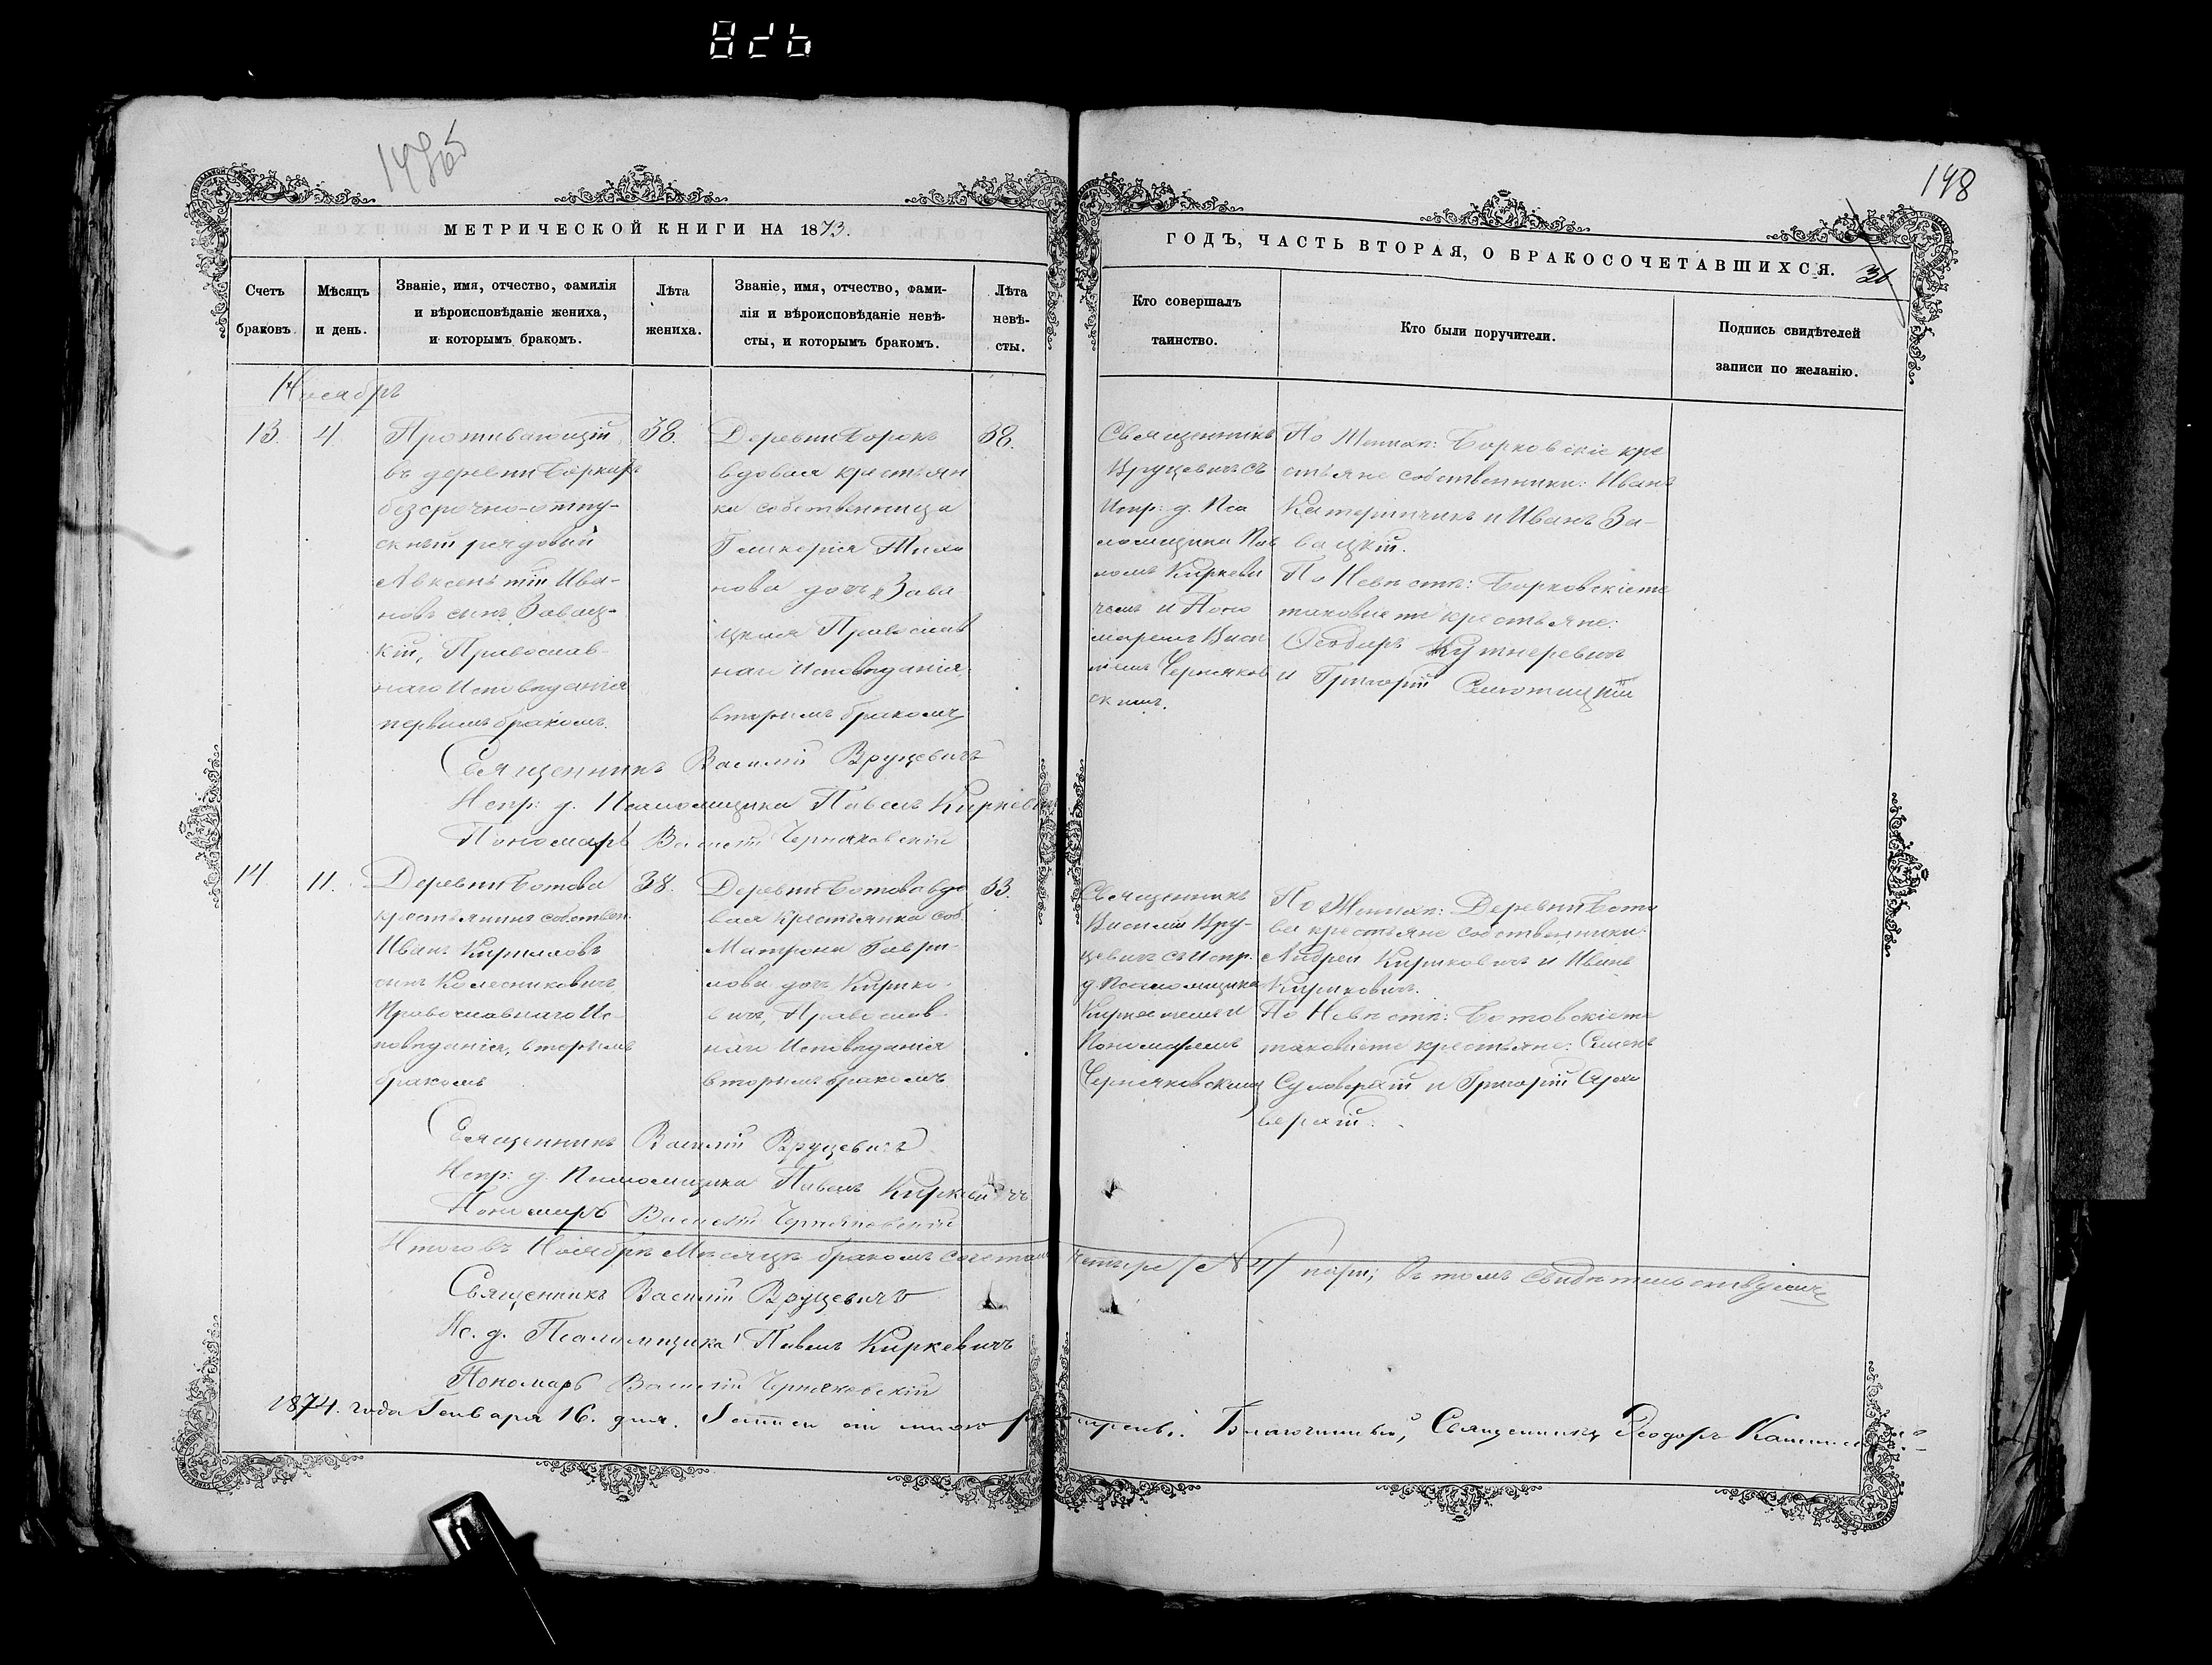 826
148об
148
МЕТРИЧЕСКОЙ КНИГИ НА 1873.
ГОДЪ, ЧАСТЬ ВТОРАЯ, О БРАКОСОЧЕТАВШИХСЯ.
36
Счетъ браковъ.
Мѣсяцъ и день.
Званіе, имя, отчество, фамилія
и вѣроисповѣданіе жениха,
и которымъ бракомъ.
Лѣта
жениха.
Званіе, имя, отчество, фами-
лія и вѣроисповѣданіе невѣ-
сты, и которымъ бракомъ.
Лѣта
невѣ-
сты.
Кто совершалъ
таинство.
Кто были поручители.
Подпись свидѣтелей
записи по желанію.
Ноябрь
13.
4.
Проживающій
въ деревни Боркахъ
безсрочно-отпу-
скный рядовый
Авксентій Ива-
новъ сынъ Завац-
кій, Православ-
наго Исповѣданія
первымъ бракомъ.
38.
Деревни Борокъ
вдовая крестьян
ка собственница
Гликерія Тихо
нова дочь Зава
цкая Православ
наго Исповѣданія,
вторымъ бракомъ
38.
Священникъ
Вруцевичъ съ
Испр: д. Пса
ломщика Пав
ломъ Киркеви
чемъ и Поно
маремъ Васи
ліемъ Черняков
скимъ.
По Женихѣ: Борковскіе кре
стьяне собственники: Иванъ
Катеринчикъ и Иванъ За-
вацкій.
По Невѣстѣ: Борковскіе же
таковые же крестьяне:
Ѳеодоръ Кушнеревичъ
и Григорій
Священникъ Василій Вруцевичъ
Испр: д. Псаломщика Павелъ Киркевичъ
Пономарь Василій Черняковскій
14.
11.
Деревни Ботова
крестьянинъ собствен.
Иванъ Кирилловъ
сынъ Колесниковичъ,
Православнаго Ис-
повѣданія, вторымъ
бракомъ
38.
Деревни Ботова вдо
вая крестьянка соб.
Матрона Гаври-
лова дочь Кирико-
вичъ, Православ-
наго Исповѣданія
вторымъ бракомъ
33.
Священникъ
Василій Вру-
цевичъ съ Испр.
д. Псаломщика
и
Пономаремъ
Черняковскимъ
По Женихѣ: Деревни Бото
ва крестьяне собственники:
Андрей Кириковичъ и Иванъ
Кириковичъ.
По Невѣстѣ: Ботовскіе же
таковые же крестьяне: Симонъ
Суховерхій и Григорій Сухо
верхій.
Священникъ Василій Вруцевичъ
Испр: д. Псаломщика Павелъ Киркевичъ
Пономарь Василій Черняковскій
Итого въ Ноябрѣ Мѣсяцѣ бракомъ сочетано четыре /№ 4/ пары; въ томъ свидѣтельствуемъ
Священникъ Василій Вруцевичъ
Ис. д. Псаломщика Павелъ Киркевичъ
Пономарь Василій Черняковскій
1874. года Генваря 16. дня. Благочинный, Священникъ Ѳеодоръ